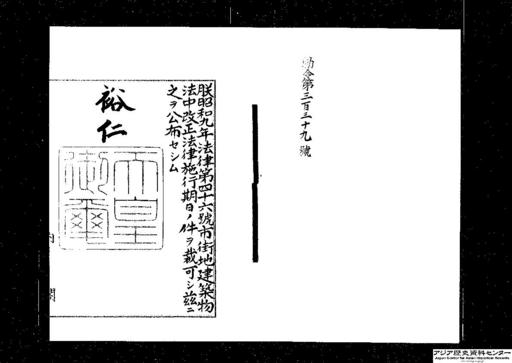 勅令第三百三十九號
朕昭和九年法律第四十六號市街地建築物
法中改正法律施行期日ノ件ヲ裁可シ茲ニ
之ヲ公布セシム
裕仁
天皇
御璽
内閣
アジア歴史資料センター
Japan Center for Asian Historical Records